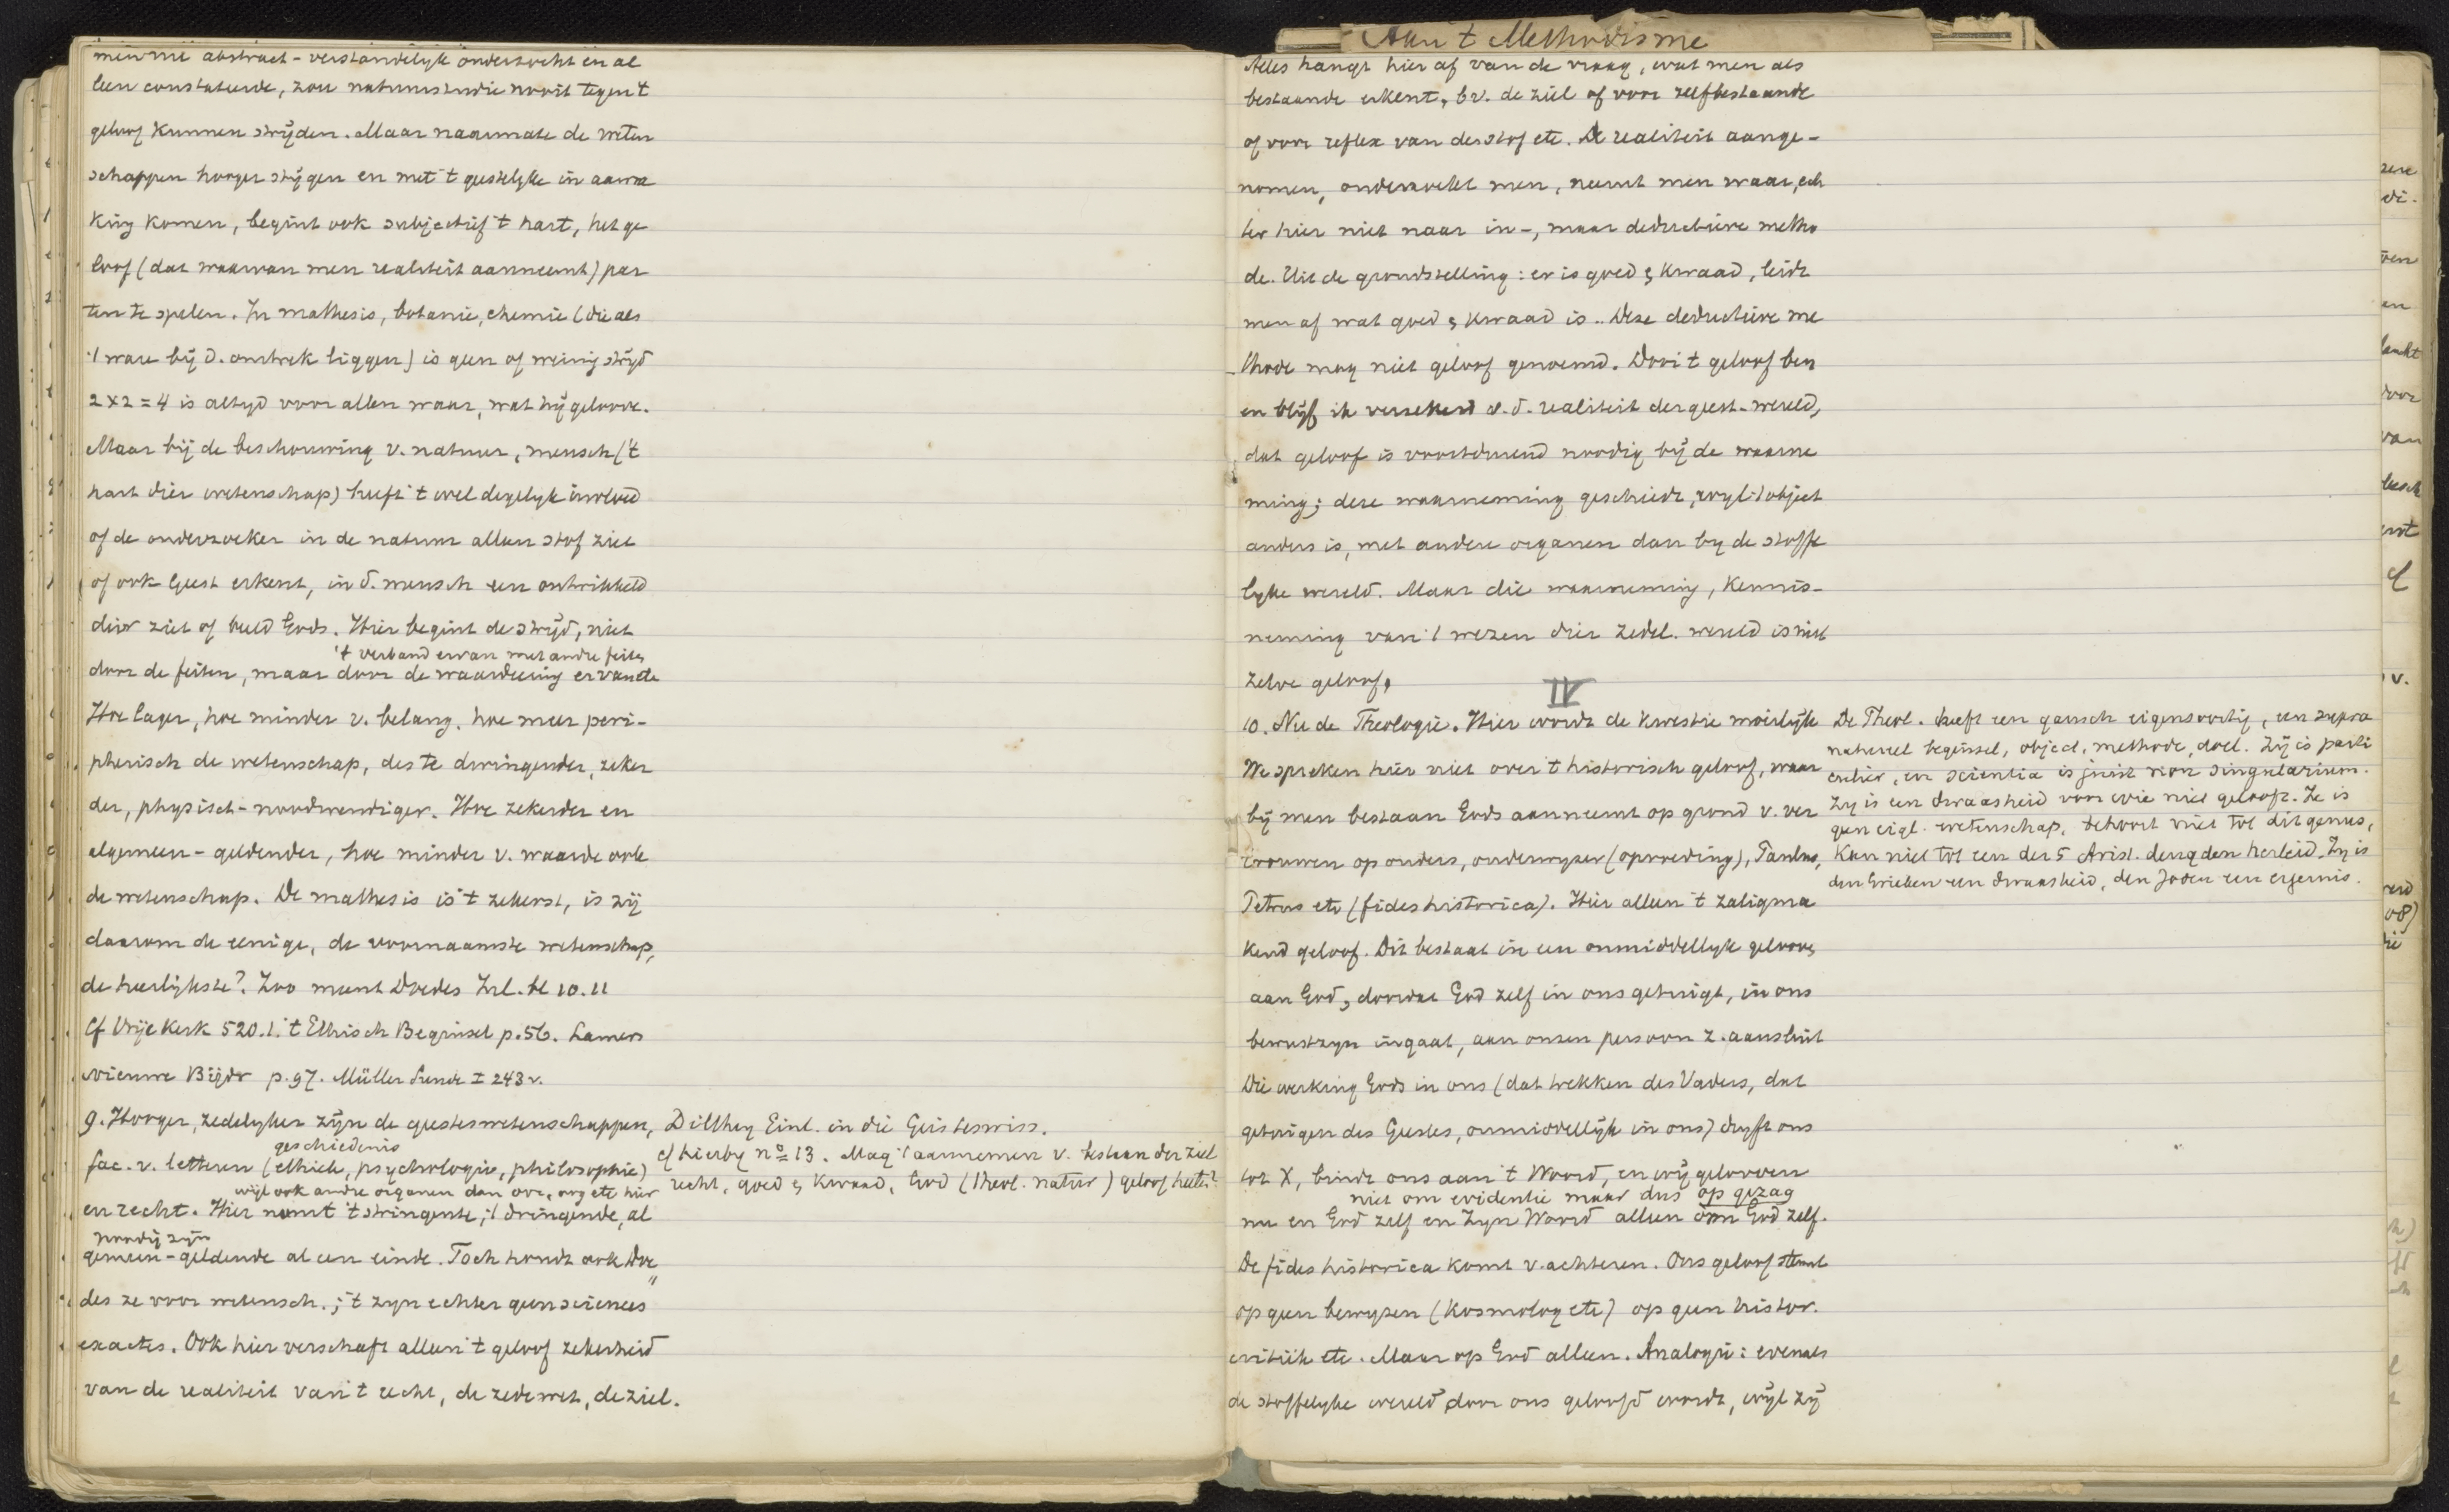 men nu abstract-verstandelyk onderzocht en al
leen constateerde, zou natuurstudie nooit tegen 't
geloof kunnen strijden. Maar naarmate de weten
schappen hooger stijgen en met 't geestelyke in aanra
king komen, begint ook subjectief 't hart, het ge
loof (dat waarvan men realiteit aanneemt) par
ten te spelen. In mathesis, botanie, chemie (die als
't ware bij d. omtrek liggen) is geen of weinig strijd
2 x 2 = 4 is altyd voor allen waar, wat hij geloove.
Maar bij de beschouwing v. natuur, mensch ('t
hart dier wetenschap) heeft 't wel degelyk invloed
of de onderzoeker in de natuur alleen stof ziet
of ook Geest erkent, in d. mensch een ontwikkeld
dier ziet of beeld Gods. Hier begint de strijd, niet
't verband ervan met andre feiten
door de feiten, maar door de waardeering ervan etc
Hoe lager, hoe minder v. belang, hoe meer peri-
pherisch de wetenschap, des te dwingender, zeker
der, physisch-noodwendiger. Hoe zekerder en
algemeen-geldender, hoe minder v. waarde ook
de wetenschap. De mathesis is 't zekerst, is zij
daarom de eenige, de voornaamste wetenschap,
de heerlijkste? Zoo meent Doedes Inl. bl 10.11
Cf Vrije Kerk 520.1. 't Ethisch Beginsel p.56. Lamers
nieuwe Bijdr p.97. Müller Sünde I 243 v.
9. Hooger, zedelyker zijn de geesteswetenschappen,
geschiedenis
fac. v. letteren (ethiek, psychologie, philosophie)
wijl ook andre organen dan oor, oog etc hier
en recht. Hier neemt 't stringente, 't dringende, al
noodig zijn
gemeen-geldende al een einde. Toch houdt ook Doe
des ze voor wetensch.; 't zyn echter geen sciences
exactes. Ook hier verschaft alleen 't geloof zekerheid
van de realiteit van 't recht, de zedewet, de ziel.
Dilthey Einl. in die Geisteswiss.
cf hierby no 13. Mag 't aannemen v. bestaan der ziel
recht, goed & kwaad, God (theol. natur) geloof heeten?
Aan 't Methodisme
Alles hangt hier af van de vraag, wat men als
bestaande erkent, bv. de ziel of voor zelfbestaande
of voor reflex van de stof etc. De realiteit aange-
nomen, onderzoekt men, neemt men waar, ech
ter hier niet naar in-, maar deductieve metho
de. Uit de grondstelling: er is goed & kwaad, leidt
men af wat goed & kwaad is.. Deze deductieve me
thode mag niet geloof genoemd. Door 't geloof ben
en blijf ik verzekerd v. d. realiteit der geest. wereld,
dat geloof is voortdurend noodig bij de waarne
ming; deze waarneming geschiedt, wyl 't object
anders is, met andere organen dan by de stoffe
lyke wereld. Maar die waarneming, kennis-
neming van 't wezen dier zedel. wereld is niet
zelve geloof.
IV
10. Nu de Theologie. Hier wordt de kwestie moeilijk
We spreken hier niet over 't historisch geloof, waar
bij men bestaan Gods aanneemt op grond v. ver
trouwen op ouders, onderwyzer (opvoeding), Paulus,
Petrus etc (fides historica). Hier alleen 't zaligma
kend geloof. Dit bestaat in een onmiddellyk gelooven
aan God, doordat God zelf in ons getuigt, in ons
bewustzyn ingaat, aan onzen persoon z. aansluit
Die werking Gods in ons (dat trekken des Vaders, dat
getuigen des Geestes, onmiddellijk in ons) dryft ons
tot X, bindt ons aan 't Woord, en wij gelooven
niet om evidentie maar dus op gezag
nu en God zelf en Zyn Woord alleen om God zelf.
De fides historica komt v. achteren. Ons geloof steunt
op geen bewyzen (kosmolog etc) op geen histor.
critiek etc. Maar op God alleen. Analogie: evenals
de stoffelyke wereld door ons geloofd wordt, wijl zij
De Theol. heeft een gansch eigensoortig, een supra
natureel beginsel, object, methode, doel. Zij is parti
culier, en scientia is juist non singularium.
Zy is een dwaasheid voor wie niet gelooft. Ze is
geen eigl. wetenschap, behoort niet tot dit genus,
kan niet tot een der 5 Arist. deugden herleid. Zy is
den Grieken een dwaasheid, den Joden een ergernis.